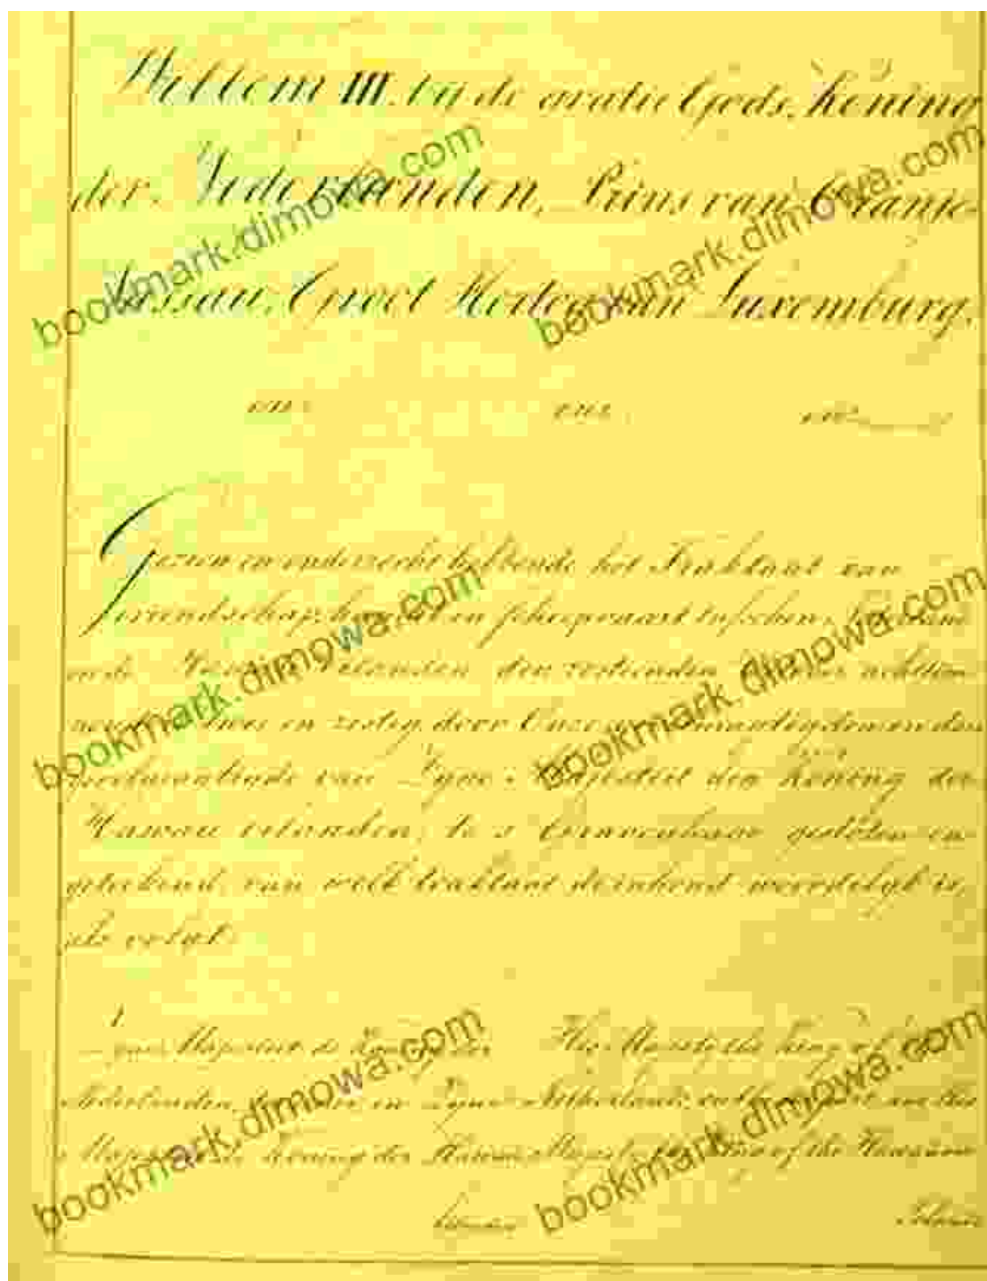 Willem III, bij de gratie Gods, Koning
der Nederlanden, Prins van Oranje-
Nassau, Groot Hertog van Luxemburg,
enz. enz. enz.
Gezien en onderzocht hebbende het Traktaat van
vriendschap, handel en scheepvaart tusschen Nederland
en de eilanden den zestienden October achttien
honderd twee en zestig door Onzen gevolmachtigde en den
van Zyne Majesteit den Koning der
Hawaii eilanden, te 's Gravenhage gesloten en
geteekend, van welk traktaat de inhoud woordelyk is
als volgt:
Zyne Majesteit de Koning der
Nederlanden, en Zyne
Majesteit de Koning der Hawaii
eilanden
His Majesty the King of the
Netherlands, on the one part and His
Majesty the King of the Hawaiian
Islands
bookmark.dimowa.com
bookmark.dimowa.com
bookmark.dimowa.com
bookmark.dimowa.com
bookmark.dimowa.com
bookmark.dimowa.com